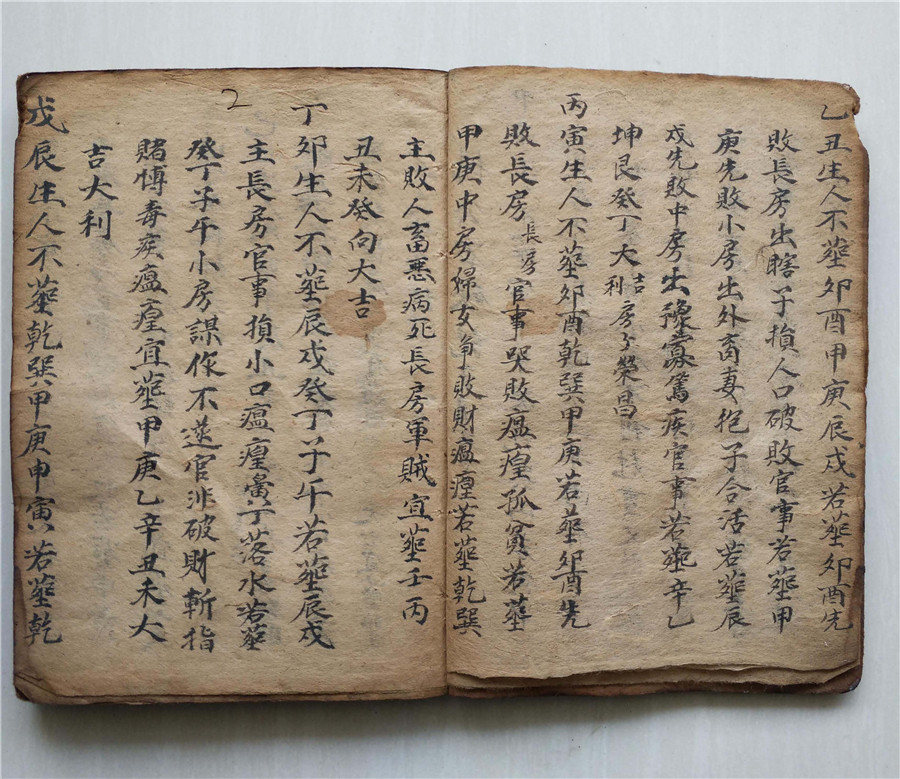 乙丑生人不葬卯酉甲庚辰戌若葬卯酉先
敗長房出瞎子損人口破敗官事若葬甲
庚先敗小房出外畜妻抱子合活若葬辰
戌先敗中房出寡篤疾官事若葬辛乙
坤艮癸丁大吉利房房榮昌
丙寅生人不葬卯酉乾巽甲庚若葬卯酉先
敗長房長房官事哭敗瘟瘟孤貧若葬
甲庚中房婦女争敗財瘟瘟若葬乾巽
主敗人畜悪病死長房軍賊宜葬壬丙
丑未癸向大吉
2
丁卯生人不葬辰戌癸丁子午若葬辰戌
主長房官事損小口瘟㾮丁落水若葬
癸丁子午小房謀你不逆官非破財斬指
賭博毒疾瘟㾮宜葬甲庚乙辛丑未大
吉大利
戊辰生人不葬乾巽甲庚申寅若葬乾